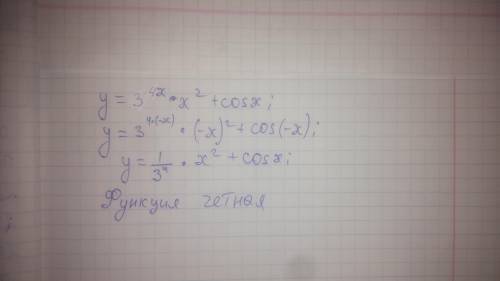 y = 3^{4x} · x^2 + cosx;
y = 3^{4·(-x)} · (-x)^2 + cos(-x);
y = \frac{1}{3^4} · x^2 + cosx;
Функция четная